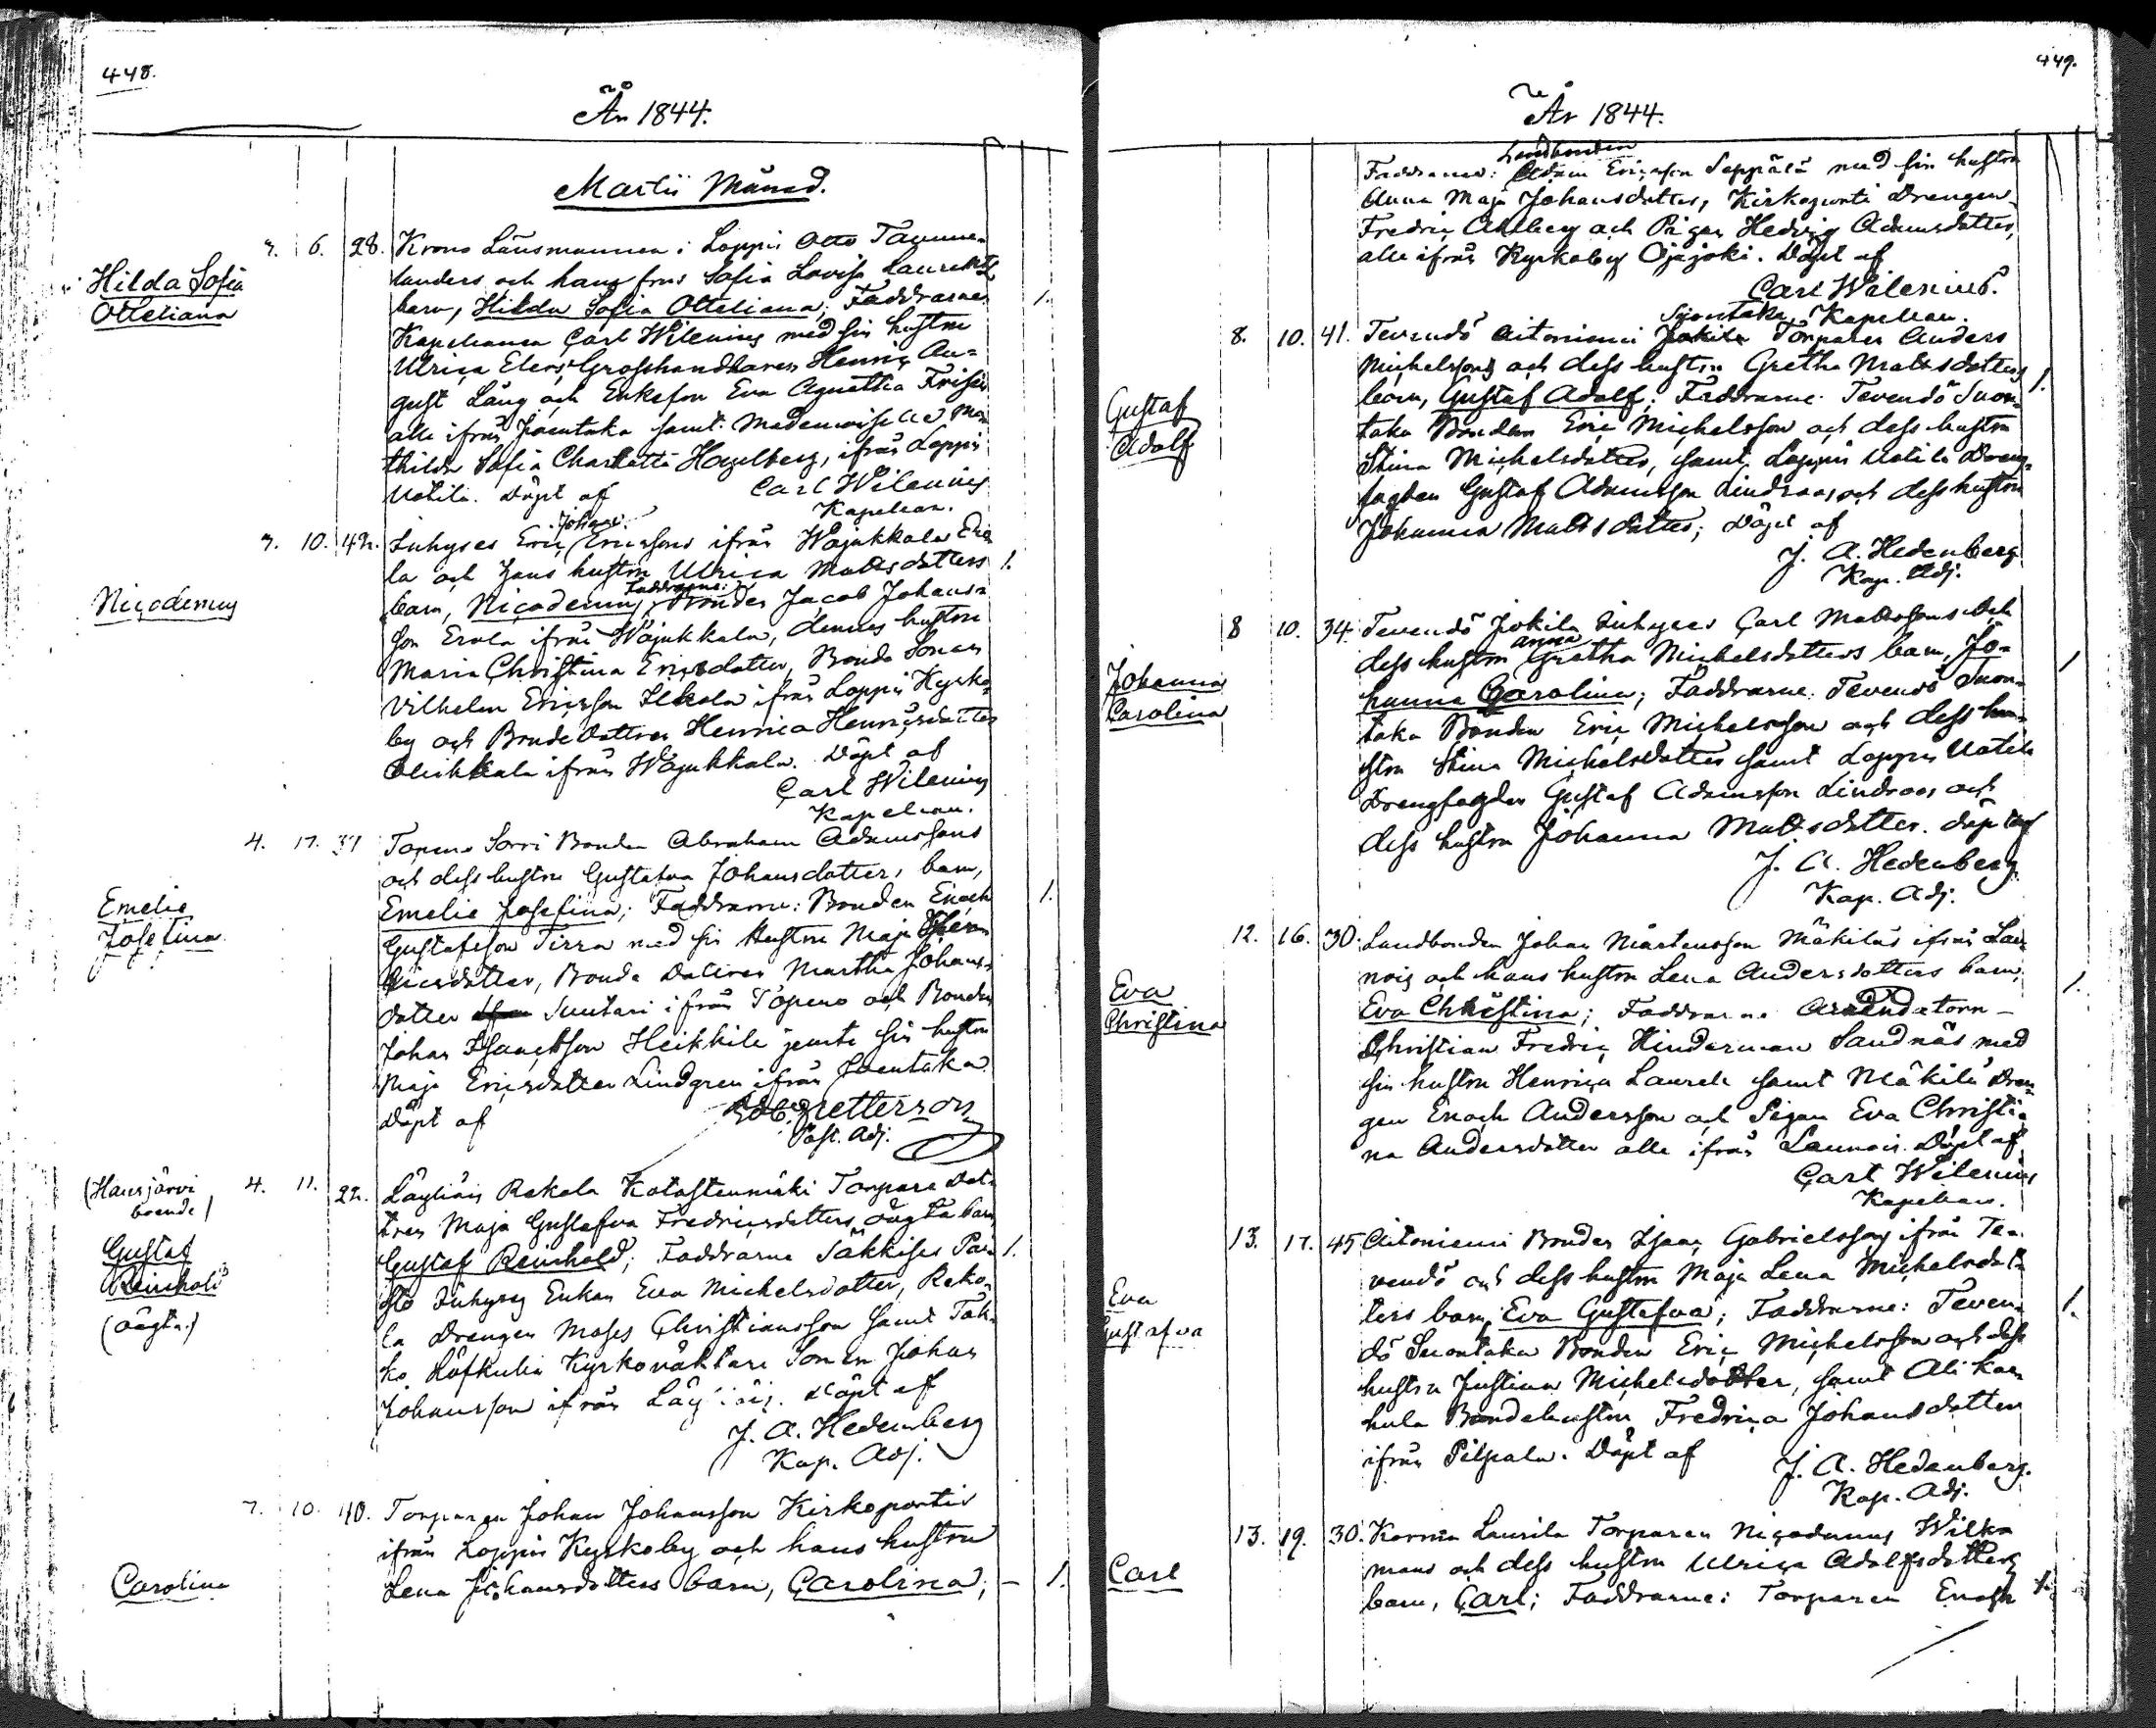 448.
År 1844.
Martii Månad.
Hilda Sofia
Otteliana
6. 28. Krono Länsmannen i Loppis Otto
landers och hans frus Sofia Lovisa
barn, Hilda Sofia Otteliana; Faddrarne
Kapellanen Carl Wilenius med sin hustru
Ulrica Elers, Grosshandlaren Henric Au-
gust Lång och Enkefru Eva Agnetha
alle ifrån Joentaka samt Mademoiselle Ma-
thilda Sofia Charlotta Hagelberg, ifrån Loppis
Uotila. Döpt af Carl Wilenius
Kapellan.
Nicodemus
10. 42. Inhyses Eric Johan Ericssons ifrån Wojakkala
la och hans hustru Ulrica Mattsdotters 1.
barn, Nicodemus, Faddrarne: Bonden Jacob Johans-
son Erola ifrån Wojakkala, dennes hustru
Maria Christina Ericsdotter, Bonde Sonen
Vilhelm Ericsson Ilkala ifrån Loppis Kyrko-
by och Bonde dottren Henrica Henricsdotter
ifrån Wojakkala. Döpt af
Carl Wilenius
Kapellan.
Emelie
Josefina
4. 17. 37 Topeno Sorri Bonden Abraham Adamssons
och dess hustru Gustafva Johansdotters barn,
Emelie Josefina; Faddrarne: Bonden Enoch 1.
Gustafsson Tirra med sin Hustru Maja
Ericsdotter, Bonde Dottren Martha Johans-
dotter Suutari ifrån Topeno och Bonden
Johan Isaacksson Heikkilä jemte sin hustru
Maja Ericsdotter Lindgren ifrån Joentaka
Döpt af Petterson
Past. Adj.
(Hausjärvi
boende)
Gustaf
Reinhold
(oägta.)
4. 11. 22. Läyliäis Rekola Katastenmäki Torpare Dot-
tren Maja Gustafva Fredricsdotters oägta barn
Gustaf Reinhold; Faddrarne Sakkises 1.
Inhyses Enkan Eva Michelsdotter, Reko-
la Drengen Moses Christiansson samt
Kyrkoväktare Sonen Johan
Johansson ifrån Läyliäis. Döpt af
J. A. Hedenberg
Kap. Adj.
Carolina
7. 10. 40. Torparen Johan Johansson Kirkoportis
ifrån Loppis Kyrkoby och hans hustru
Lena Johansdotters barn, Carolina; — 1.
449.
År 1844.
Faddrarne: Landbonden Adam Ericsson Seppälä med sin hustru
Anna Maja Johansdotter, Kirkoportti Drengen
Fredric Ahlberg och Pigan Hedvig Adamsdotter,
alle ifrån Kyrkoby Ojajoki. Döpt af
Carl Wilenius.
Kapellan.
Gustaf
Adolf
8. 10. 41. Tevendö Aitoniemi Suontaka Torparen Anders
Michelssons och dess hustru Gretha Mattsdotters 1.
barn, Gustaf Adolf; Faddrarne: Tevendö Suon-
taka Bonden Eric Michelsson och dess hustru
Stina Michelsdotter, samt Loppis Uotila Dreng-
fogden Gustaf Adamsson Lindroos och dess hustru
Johanna Mattsdotter; Döpt af
J. A. Hedenberg
Kap. Adj.
Johanna
Carolina
8 10. 34. Tevendö Jokila Inhyses Carl Mattssons och
dess hustru Anna Gretha Michelsdotters barn, Jo-
hanna Carolina; Faddrarne. Tevendö Suon- 1
taka Bonden Eric Michelsson och dess hu-
stru Stina Michelsdotter samt Loppis Uotila
Drengfogden Gustaf Adamsson Lindroos och
dess hustru Johanna Mattsdotter. Döpt af
J. A. Hedenberg
Kap. Adj.
Eva
Christina
12. 16. 30. Landbonden Johan Mårtensson Mäkiläs ifrån Lau-
nois och hans hustru Lena Andersdotters barn, 1.
Eva Christina; Faddrarne Arrendatorn
Christian Fredric Hinderman Sandnäs med
sin hustru Henrica Laurele samt Mäkilä Dren-
gen Enoch Andersson och Pigan Eva Christi-
na Andersdotter alle ifrån Launois. Döpt af
Carl Wilenius
Kapellan.
Eva
Gustafva
13. 17. 45 Aitoniemi Bonden Isaac Gabrielssons ifrån Te-
vendö och dess hustru Maja Lena Michelsdot-
ters barn, Eva Gustafva; Faddrarne: Teven- 1.
dö Suontaka Bonden Eric Michelsson och dess
hustru Justina Michelsdotter, samt Ali Kar-
hula Bondehustrun Fredrica Johansdotter
ifrån Pilpala. Döpt af J. A. Hedenberg.
Kap. Adj.
Carl
13. 19. 30. Kormu Laurila Torparen Nicodemus Wilk
mans och dess hustru Ulrica Adolfsdotters
barn, Carl; Faddrarne: Torparen Enoch 1.